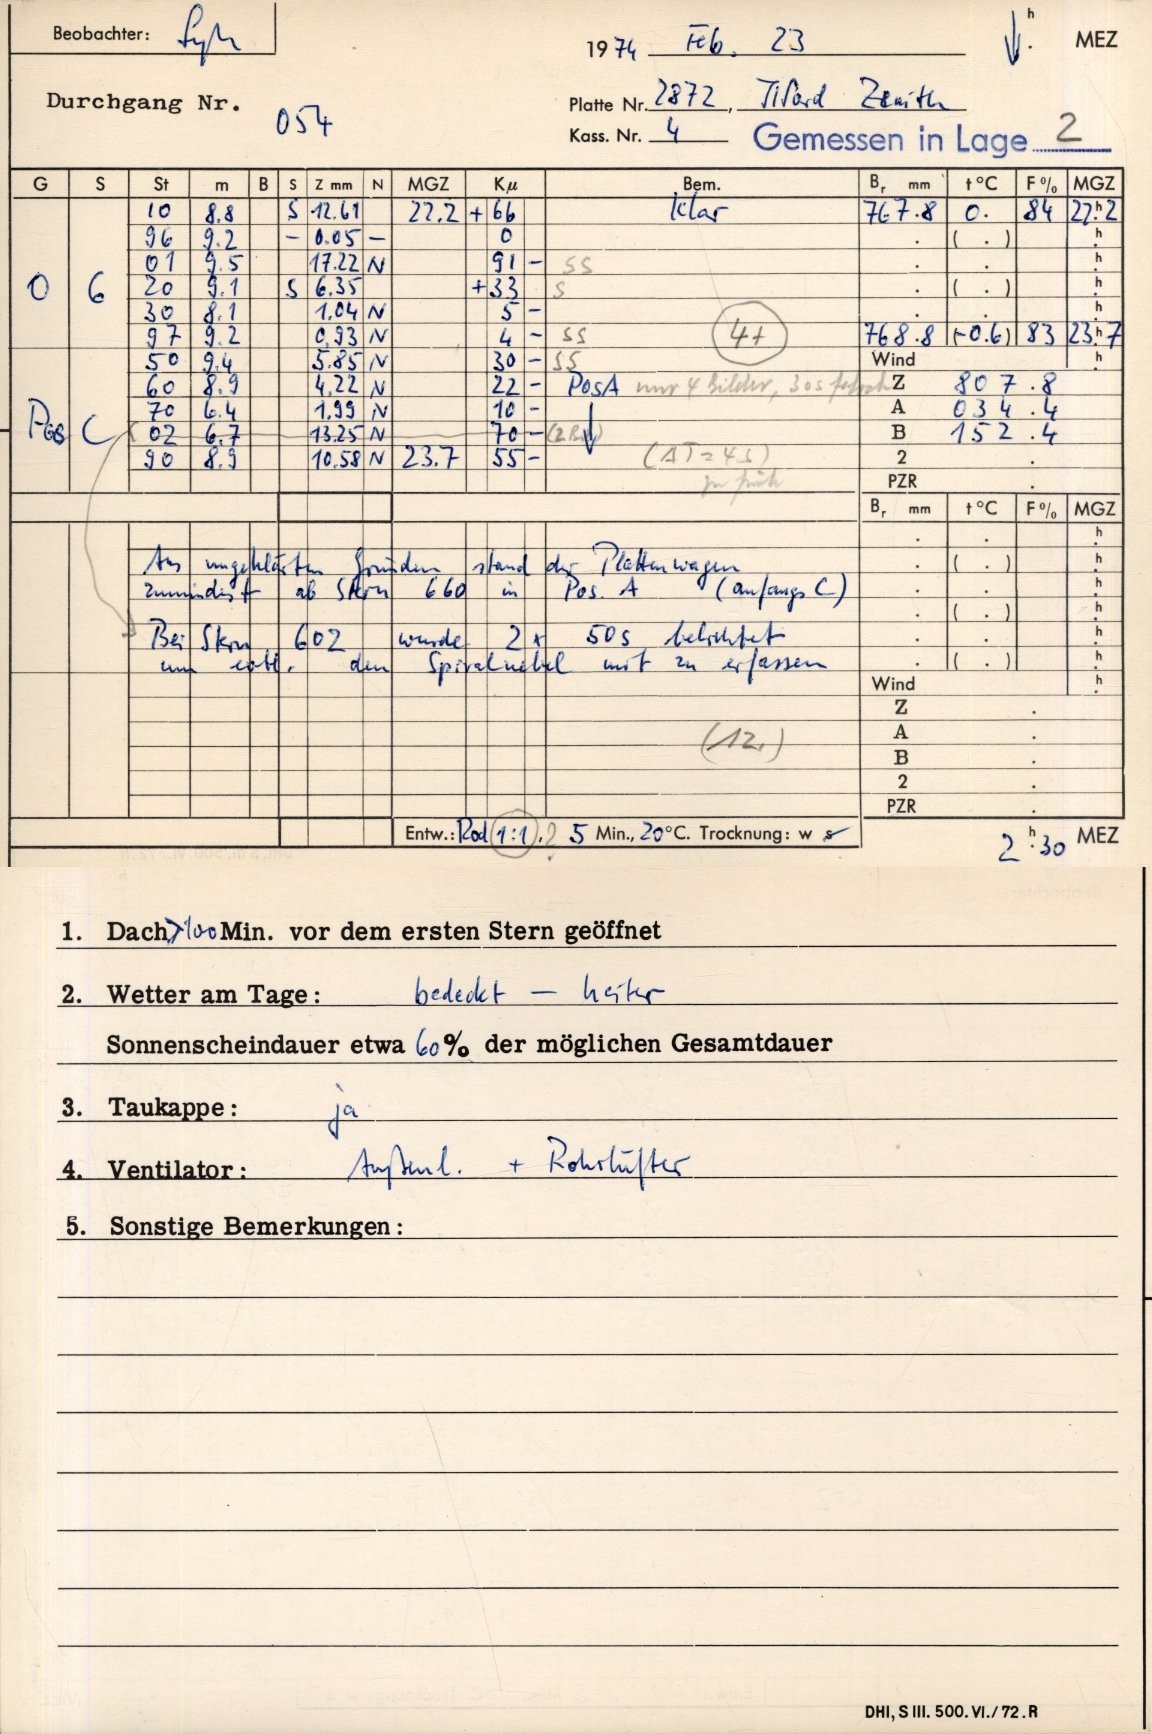 Beobachter:
1974 Feb. 23 h MEZ
Durchgang Nr. 054
Platte Nr. 2872, Zenith
Kass. Nr. 4 Gemessen in Lage 2
G S St m B S Z mm N MGZ Kμ Bem. Br mm t°C F% MGZ
10 8.8 S 12.61 22.2 +66 klar 767.8 0. 84 22h2
96 9.2 - 0.05 - 0 . ( . ) h
01 9.5 17.22 N 91 - SS . . h
0 6 20 9.1 S 6.35 +33 S . ( . ) h
30 8.1 1.04 N 5 - . . h
97 9.2 0.93 N 4 - SS 4+ 768.8 (-0.6) 83 23h7
50 9.4 5.85 N 30 - SS Wind h
60 8.9 4.22 N 22 - PosA nur 4 Bilder, 30s Z 807.8
70 6.4 1.99 N 10 - A 034.4
Pos C (02 6.7 13.25 N 70 - B 152.4
90 8.9 10.58 N 23.7 55 - (ΔT = 4s) 2 .
zu früh PZR .
Br mm t°C F% MGZ
. . h
Aus ungeklärten Gründen stand der Plattenwagen . ( . ) h
zumindest ab Stern 660 in Pos. A (anfangs C) . . h
. ( . ) h
Bei Stern 602 wurde 2 x 50s belichtet . . h
um evtl. den Spiralnebel mit zu erfassen . ( . ) h
Wind h
Z .
(12.) A .
B .
2 .
PZR .
Entw.: Rod 1:1, ? 5 Min., 20°C. Trocknung: w s 2 h 30 MEZ
1. Dach >100 Min. vor dem ersten Stern geöffnet
2. Wetter am Tage: bedeckt – heiter
Sonnenscheindauer etwa 60% der möglichen Gesamtdauer
3. Taukappe: ja
4. Ventilator: Außenl. + Rohrlüfter
5. Sonstige Bemerkungen:
DHI, S III. 500. VI./72. R